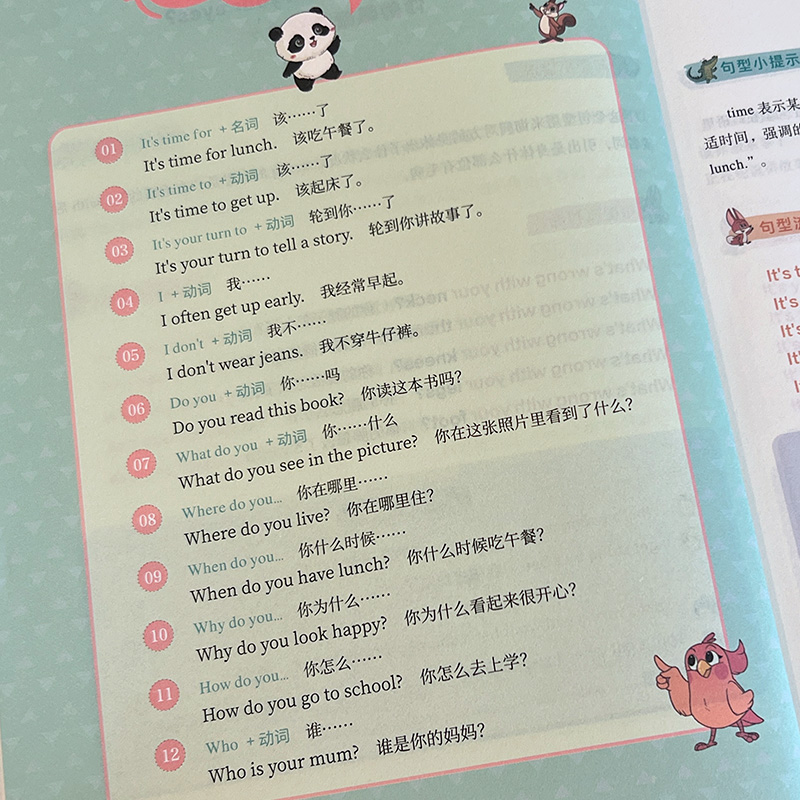 01 It's time for + 名词 该……了
It's time for lunch. 该吃午餐了。
02 It's time to + 动词 该……了
It's time to get up. 该起床了。
03 It's your turn to + 动词 轮到你……了
It's your turn to tell a story. 轮到你讲故事了。
04 I + 动词 我……
I often get up early. 我经常早起。
05 I don't + 动词 我不……
I don't wear jeans. 我不穿牛仔裤。
06 Do you + 动词 你……吗
Do you read this book? 你读这本书吗?
07 What do you + 动词 你……什么
What do you see in the picture? 你在这张照片里看到了什么?
08 Where do you... 你在哪里……
Where do you live? 你在哪里住?
09 When do you... 你什么时候……
When do you have lunch? 你什么时候吃午餐?
10 Why do you... 你为什么……
Why do you look happy? 你为什么看起来很开心?
11 How do you... 你怎么……
How do you go to school? 你怎么去上学?
12 Who + 动词 谁……
Who is your mum? 谁是你的妈妈?
句型小提示
time 表示某
适时间，强调的
lunch.”。
句型
It's t
It's
It's
It's